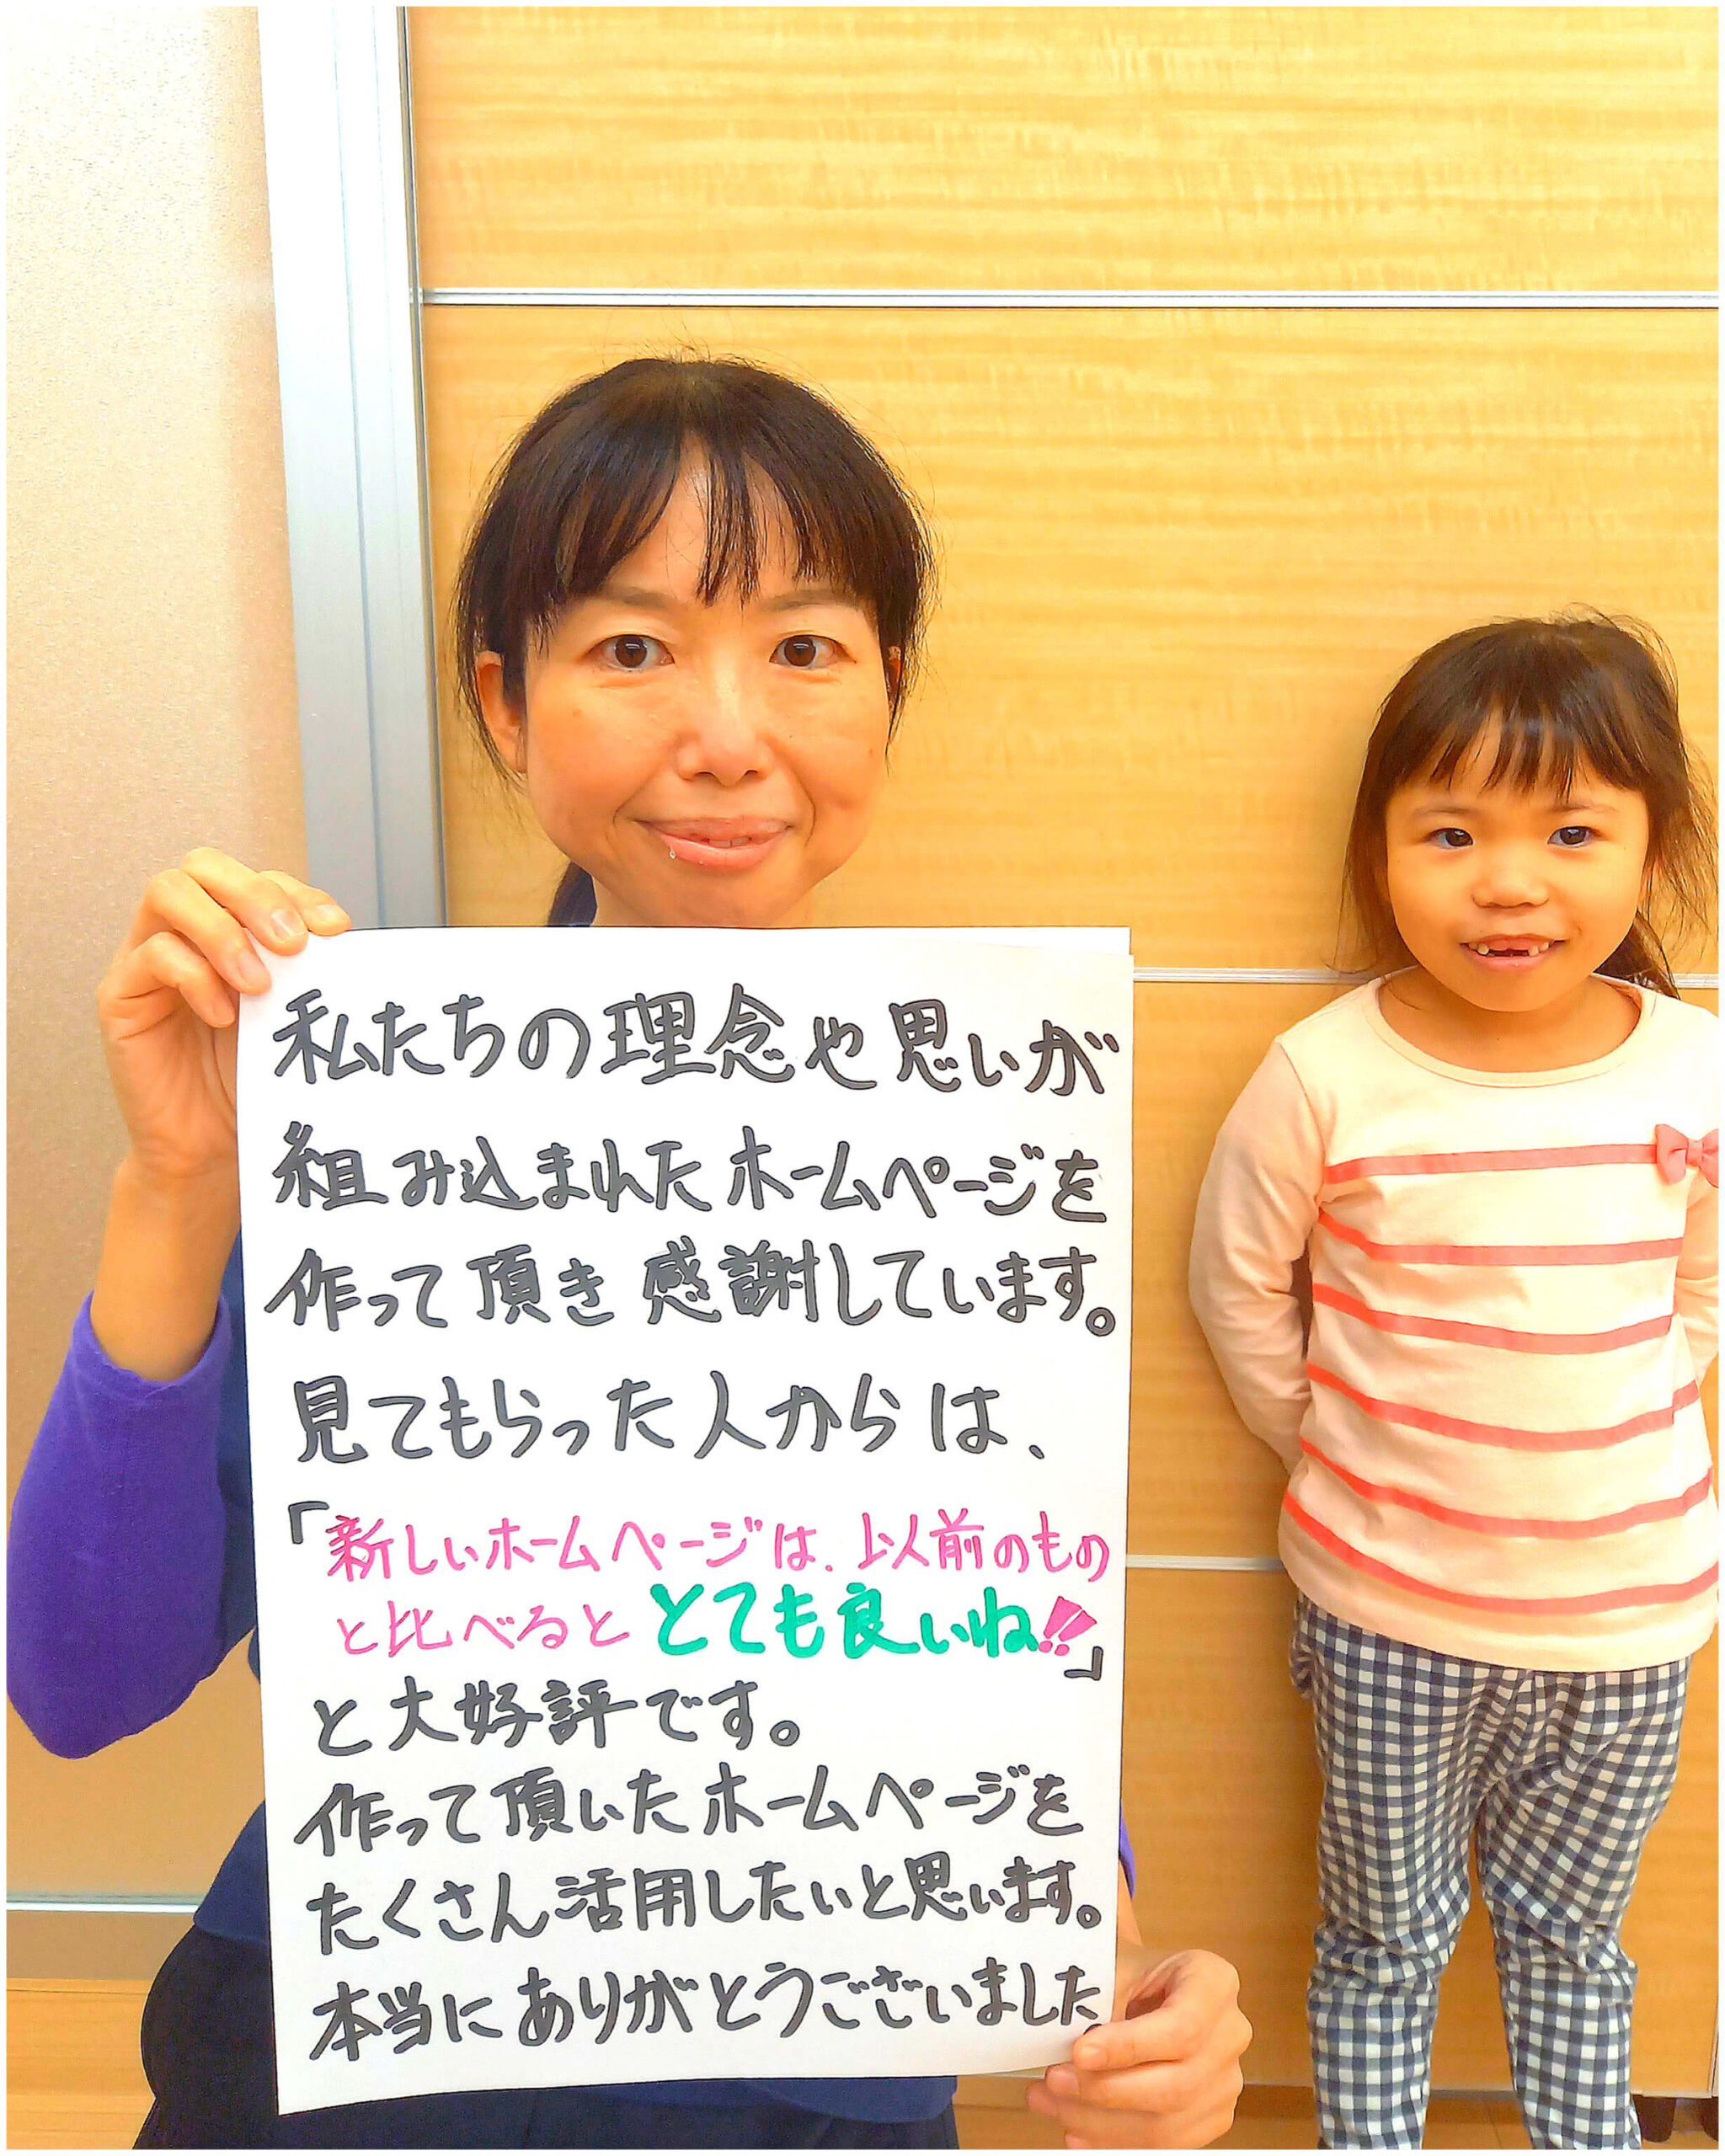 私たちの理念や思いが
組み込まれたホームページを
作って頂き感謝しています。
見てもらった人からは、
「新しいホームページは、以前のもの
と比べるととても良いね!!」
と大好評です。
作って頂いたホームページを
たくさん活用したいと思います。
本当にありがとうございました